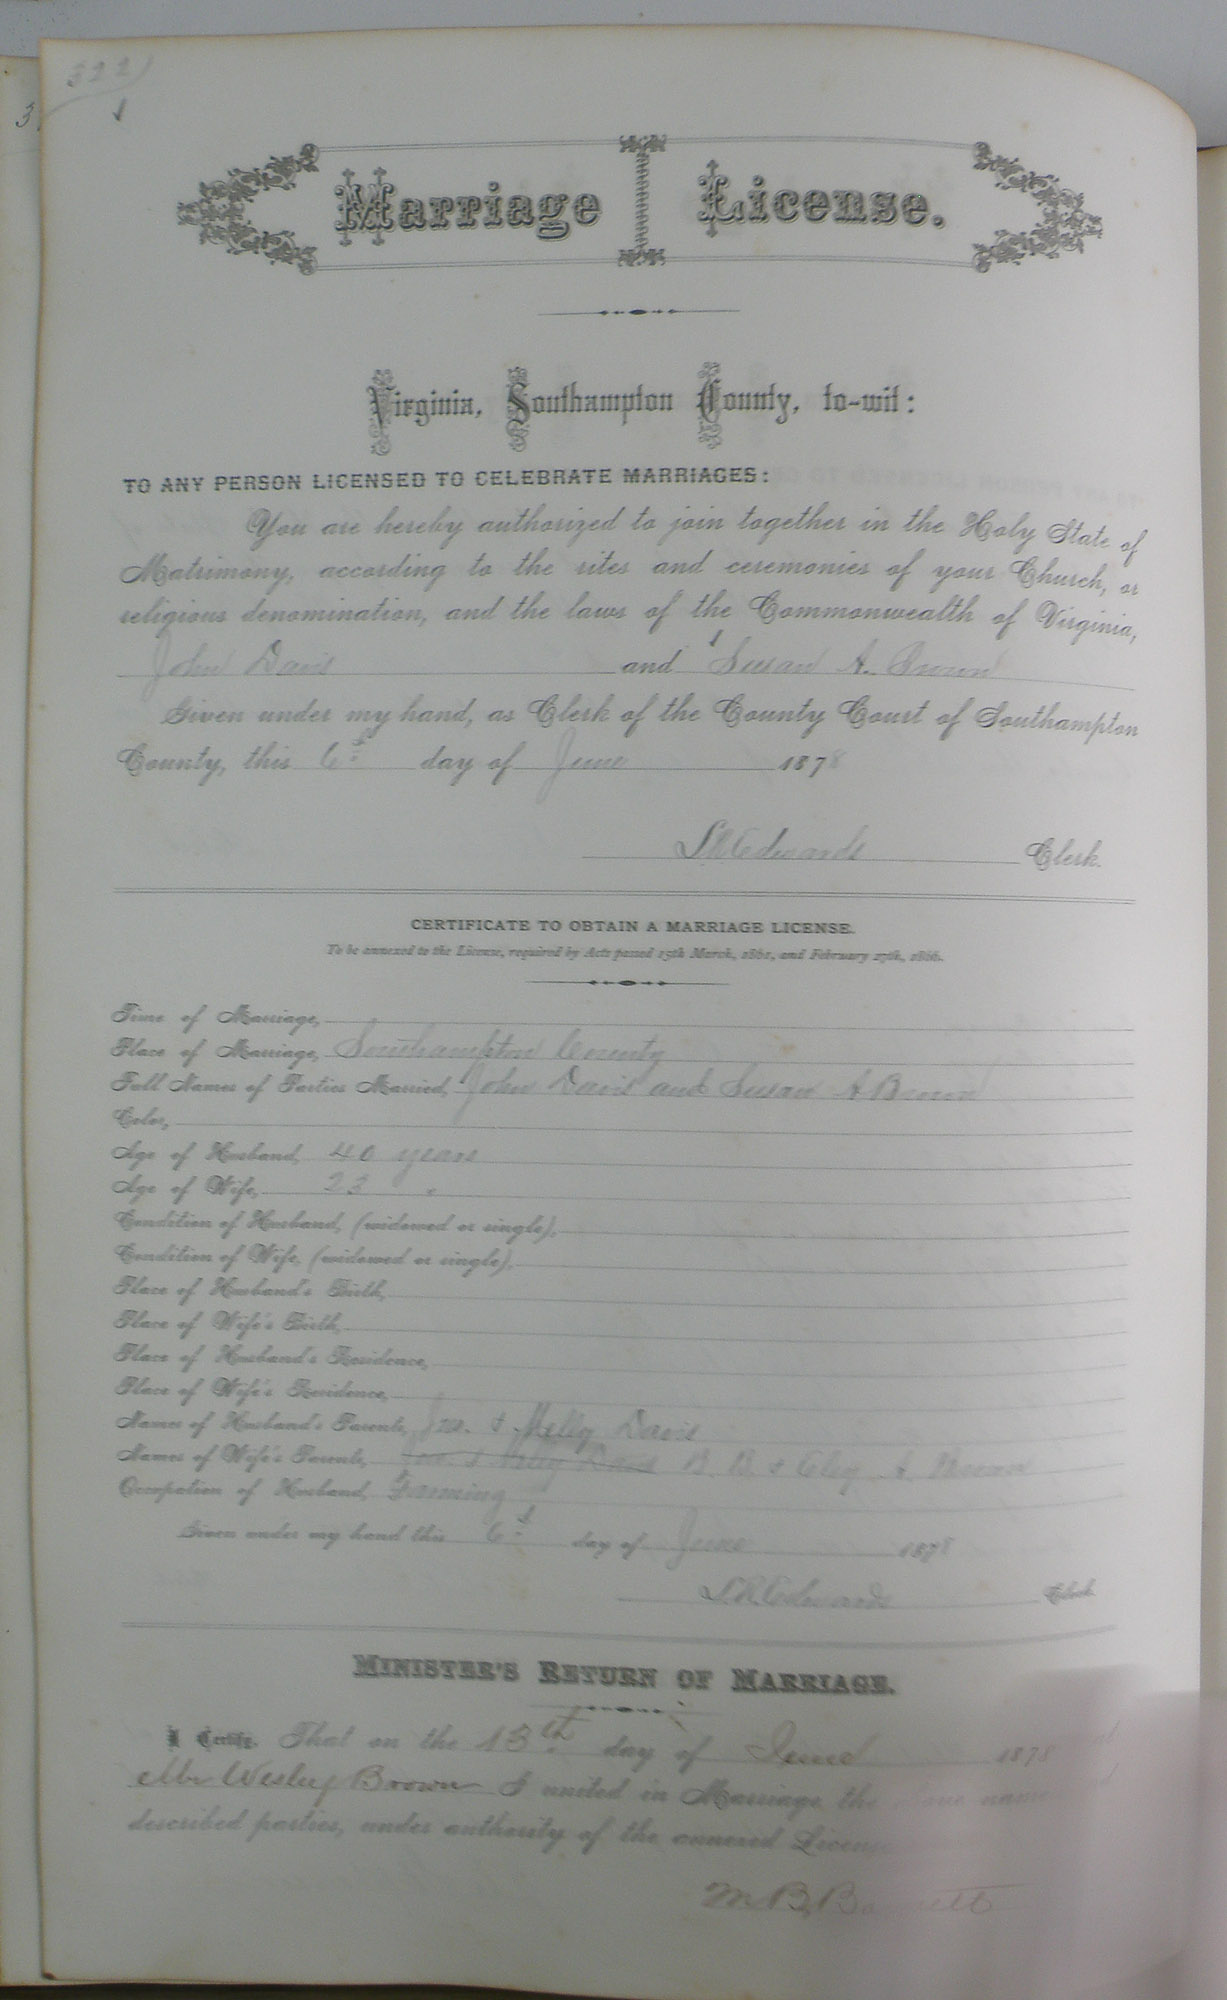 322
3
Marriage License.
Virginia, Southampton County, to-wit:
TO ANY PERSON LICENSED TO CELEBRATE MARRIAGES:
You are hereby authorized to join together in the Holy State of
Matrimony, according to the rites and ceremonies of your Church, or
religious denomination, and the laws of the Commonwealth of Virginia,
John Davis and Susan A. Brown
Given under my hand, as Clerk of the County Court of Southampton
County, this 6th day of June 1878
L R Edwards Clerk.
CERTIFICATE TO OBTAIN A MARRIAGE LICENSE.
To be annexed to the License, required by Acts passed 15th March, 1861, and February 27th, 1866.
Time of Marriage,
Place of Marriage, Southampton County
Full Names of Parties Married, John Davis and Susan A Brown
Color,
Age of Husband, 40 years
Age of Wife, 23 "
Condition of Husband, (widowed or single),
Condition of Wife, (widowed or single),
Place of Husband's Birth,
Place of Wife's Birth,
Place of Husband's Residence,
Place of Wife's Residence,
Names of Husband's Parents, Jno. & Milly Davis
Names of Wife's Parents, Jno. & Milly Davis B. B. & Eley A. Brown
Occupation of Husband, Farming
Given under my hand this 6th day of June 1878
L R Edwards Clerk
MINISTER'S RETURN OF MARRIAGE.
I Certify, That on the 13th day of June 1878
Mr Wesley Brown I united in Marriage the
described parties, under authority of the annexed License
M. B. Barrett